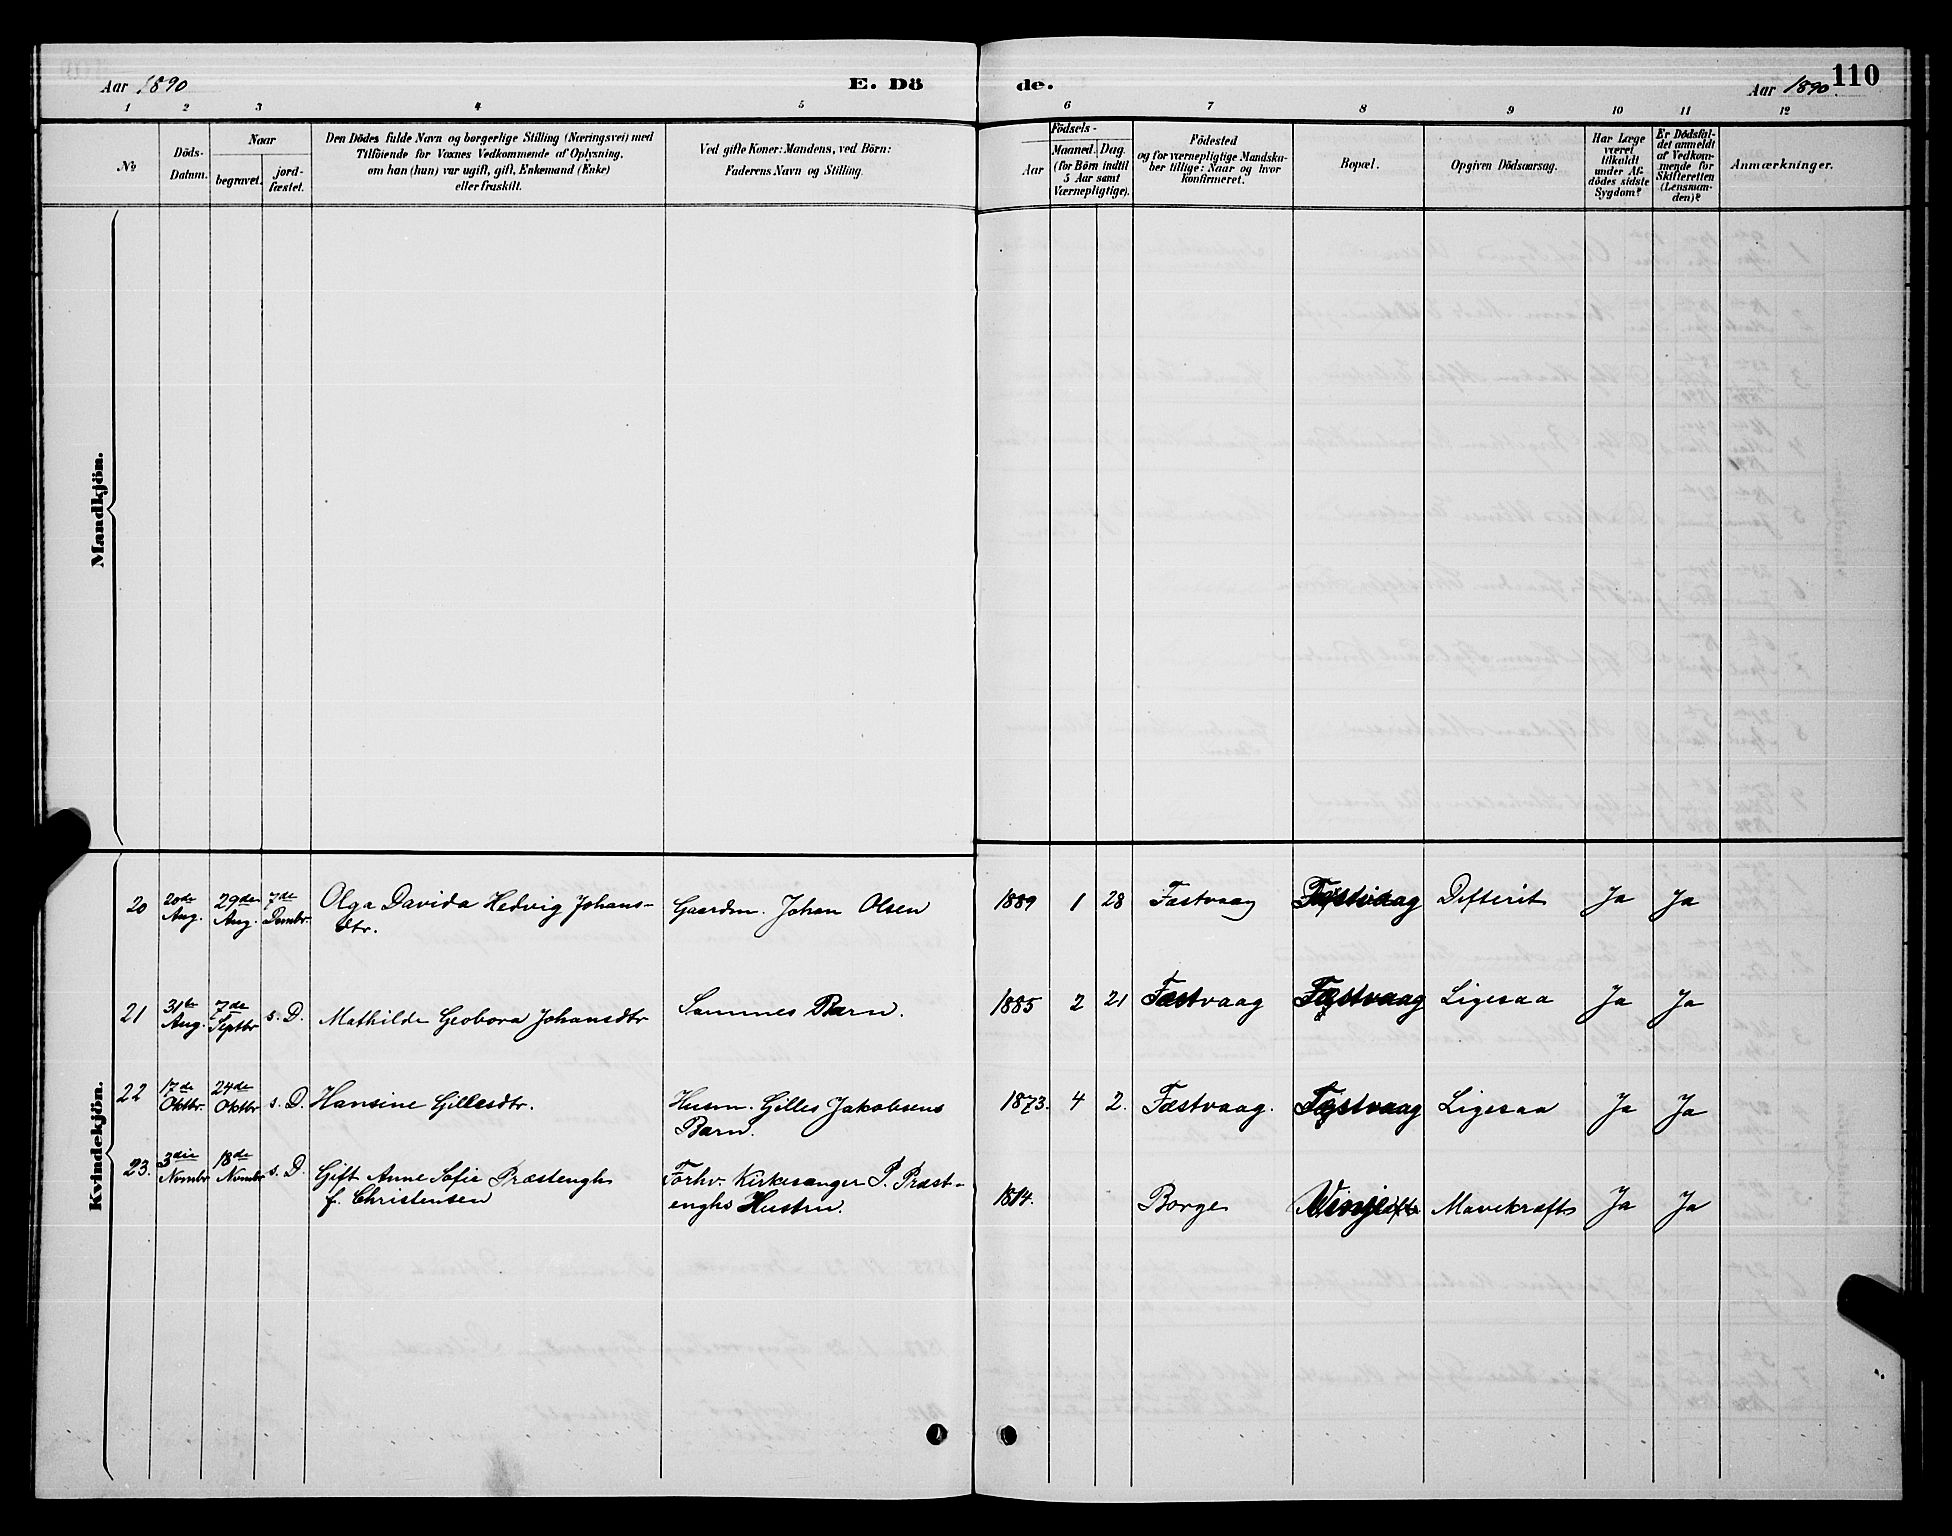 Aar 1890
E. Dö
de.
Aar 1890.
110
1 2 3 4 5 6 7 8 9 10 11 12
No
Döds-
Datum.
Naar
begravet.
jord-
fæstet.
Den Dödes fulde Navn og borgerlige Stilling (Næringsvei) med
Tilföiende for Voxnes Vedkommende af Oplysning,
om han (hun) var ugift, gift, Enkemand (Enke)
eller fraskilt.
Ved gifte Koner: Mandens, ved Börn:
Faderens Navn og Stilling.
Födsels-
Aar
Maaned.
Dag.
(for Börn indtil
5 Aar samt
Værnepligtige).
Födested
og for værnepligtige Mandska-
ber tillige: Naar og hvor
konfirmeret.
Bopæl.
Opgiven Dödsaarsag.
Har Læge
været
tilkaldt
under Af-
dödes sidste
Sygdom?
Er Dödsfal-
det anmeldt
af Vedkom-
mende for
Skifteretten
(Lensman-
den)?
Anmærkninger.
Mandkjön.
Kvindekjön.
20 20de Aug. 29de Aug. 7de Dembr. Olga Davida Hedvig Johans-
dtr.
Gaardm. Johan Olsen 1889 1 28 Fæstvaag Fæstvaag Difterit Ja Ja
21 31te Aug. 7de Septbr s. D. Mathilde Geobora Johansdtr Sammes Barn. 1885 2 21 Fæstvaag Fæstvaag Ligesaa Ja Ja
22 17de Oktbr. 24de Oktbr s. D. Hansine Gillesdtr. Husm. Gilles Jakobsens
Barn.
1873. 4 2. Fæstvaag. Fæstvaag Ligesaa Ja Ja
23. 3die Novmbr 18de Novmbr s. D. Gift Anne Sofie Præstengh
f. Christensen
Forhv. Kirkesanger P. Præst-
enghs Hustru.
1814. Borge Vinje Mavekræft Ja Ja